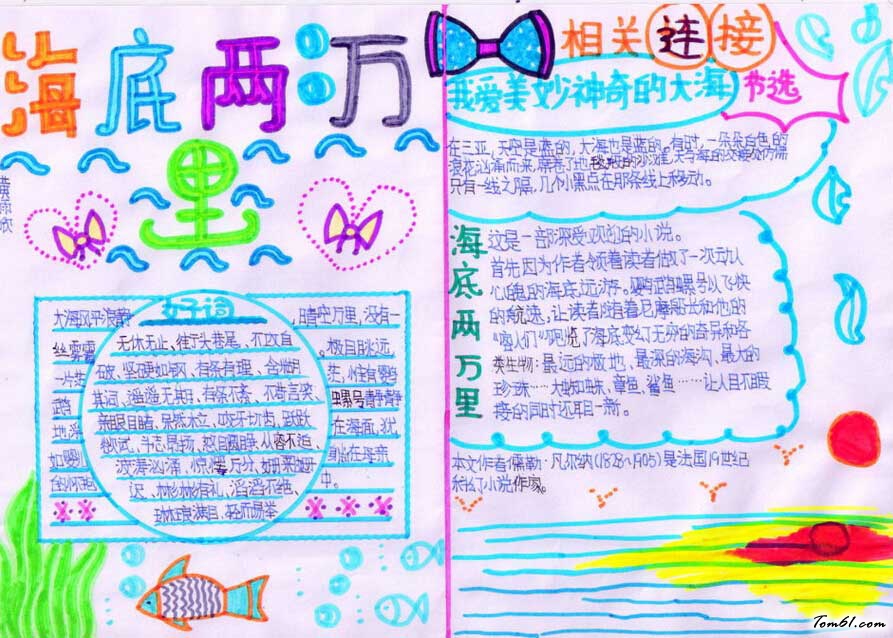 海底两万
里
好词
大海风平浪静
晴空万里,没有一
丝雾霭
无休无止、街头巷尾、不攻自
破、坚硬如钢、有条有理、含糊
极目眺远,
一片茫
其词、遥遥无期、有条不紊、不苟言笑、
亲眼目睹、呆然木立、咬牙切齿、跃跃
欲试、斗志昂扬、怒目圆睁、从容不迫、
在海面,犹
如婴儿
波涛汹涌、惊慌万分、姗姗来
迟、彬彬有礼、滔滔不绝、
中。
琳琅满目、轻而易举
相关连接
我爱美妙神奇的大海 节选
在三亚,天空是蓝的,大海也是蓝的。有时,一朵朵白色的
浪花汹涌而来,席卷了他
只有一线之隔,几个小黑点在那条线上移动。
海底两万里
这是一部深受欢迎的小说。
首先因为作者领着读者做了一次动人
心魄的海底远游。鹦鹉螺号以飞快
的航速,让读者随着尼摩船长和他的
“家人们”观览了海底变幻无穷的奇异和各
类生物:最远的极地、最深的海沟、最大的
珍珠……大蜘蛛、章鱼、鲨鱼……让人目不暇
接的同时还耳目一新。
本文作者儒勒·凡尔纳(1828~1905)是法国19世纪
科幻小说作家。
Tom61.com